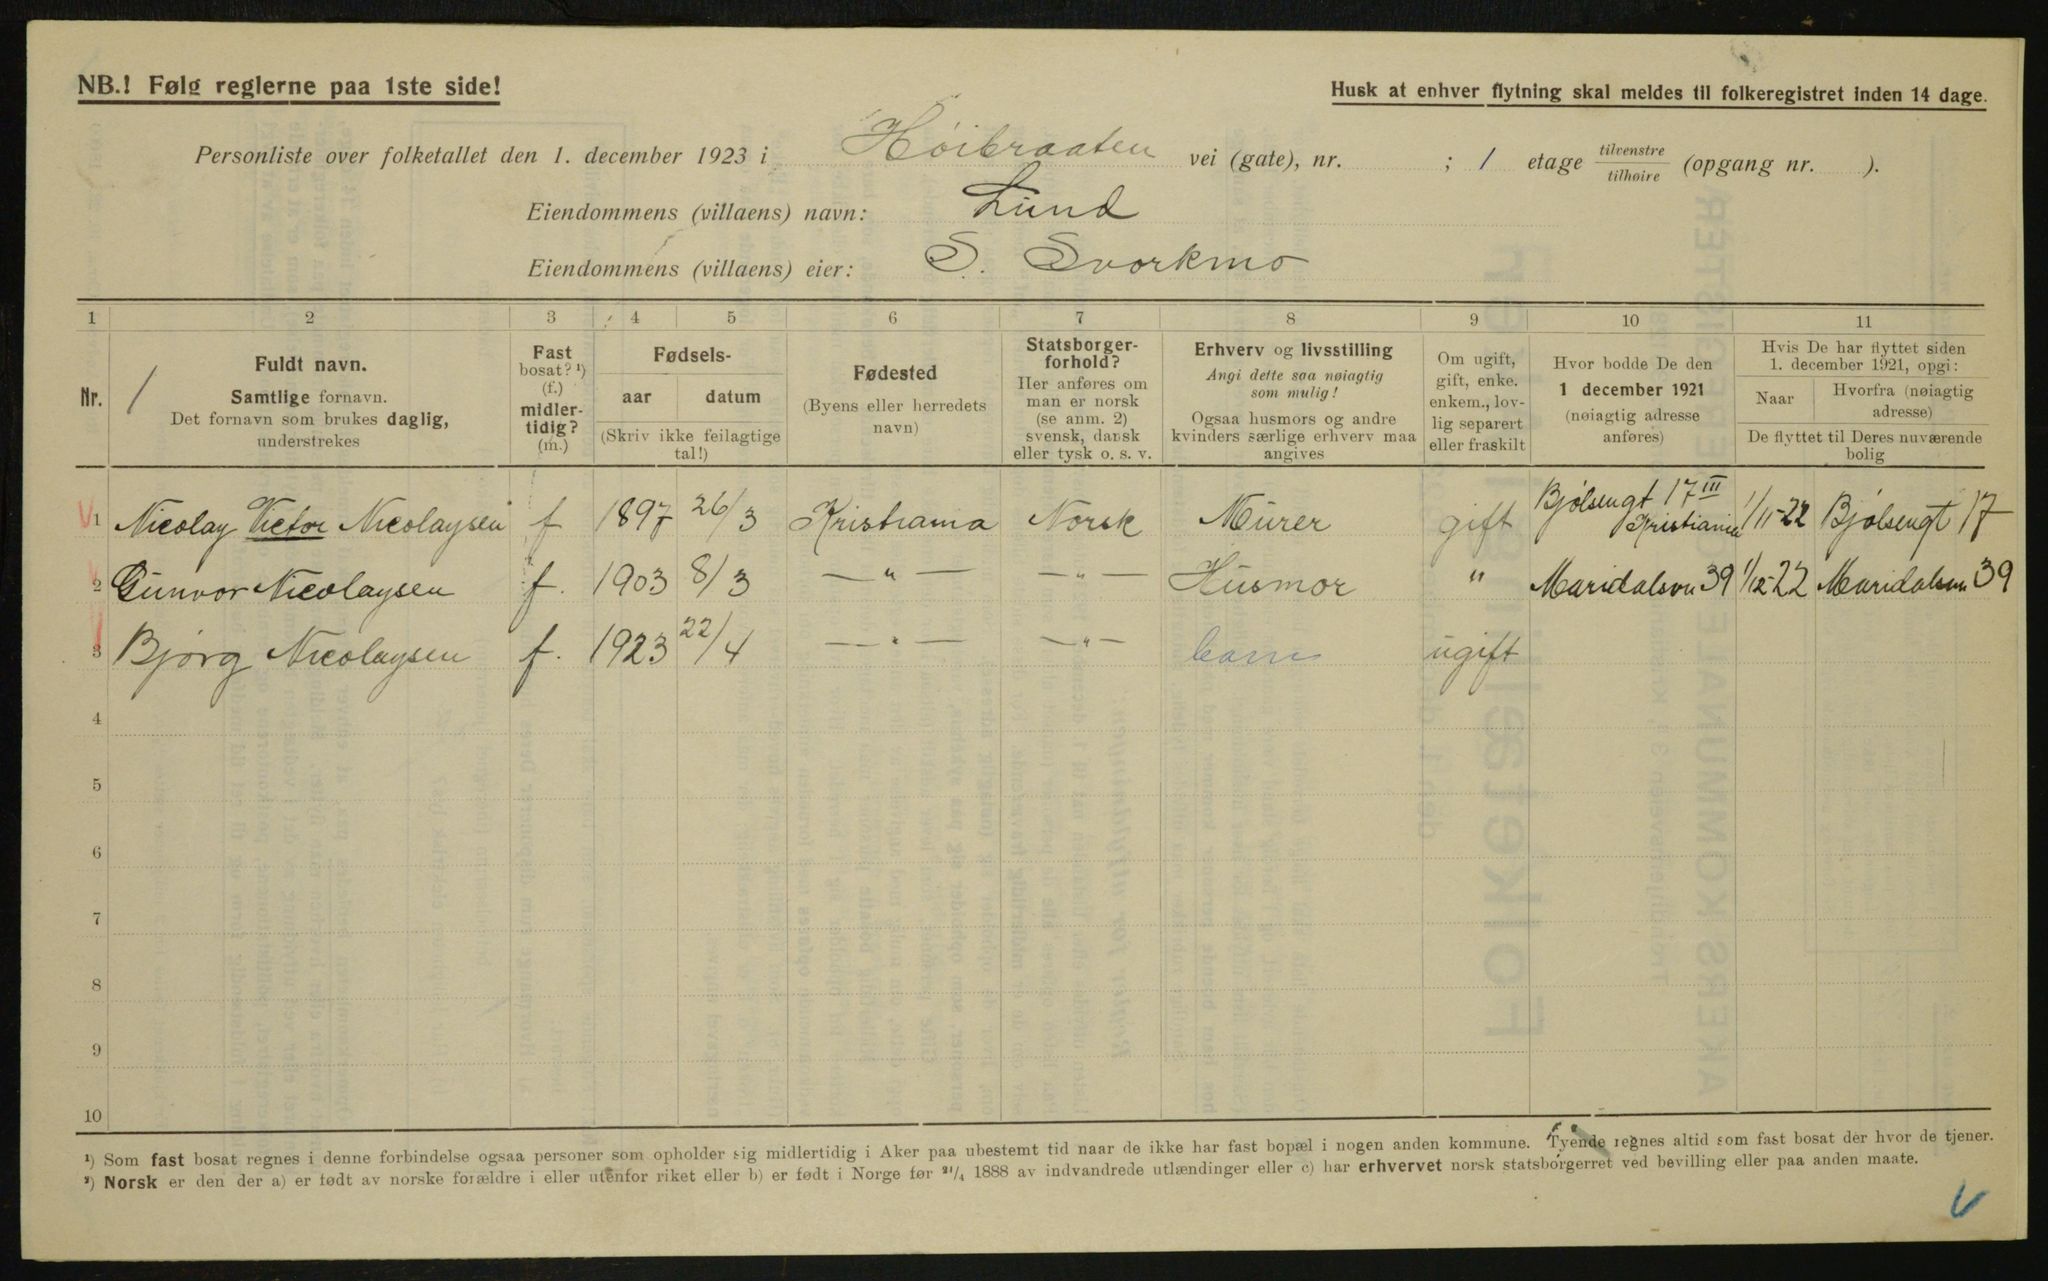 NB.! Følg reglerne paa 1ste side!
Husk at enhver flytning skal meldes til folkeregistret inden 14 dage.
Personliste over folketallet den 1. december 1923 i Høibraaten vei (gate), nr. ; 1 etage tilvenstre tilhøire (opgang nr. ).
Eiendommens (villaens) navn: Lund
Eiendommens (villaens) eier: S. Svorkmo
1 2 3 4 5 6 7 8 9 10 11
Nr.
1
Fuldt navn.
Samtlige fornavn.
Det fornavn som brukes daglig,
understrekes
Fast
bosat? ¹)
(f.)
midler-
tidig?
(m.)
Fødsels-
aar datum
(Skriv ikke feilagtige
tal!)
Fødested
(Byens eller herredets
navn)
Statsborger-
forhold?
Her anføres om
man er norsk
(se anm. 2)
svensk, dansk
eller tysk o. s. v.
Erhverv og livsstilling
Angi dette saa nøiagtig
som mulig!
Ogsaa husmors og andre
kvinders særlige erhverv maa
angives
Om ugift,
gift, enke.
enkem., lov-
lig separert
eller fraskilt
Hvor bodde De den
1 december 1921
(nøiagtig adresse
anføres)
Hvis De har flyttet siden
1. december 1921, opgi:
Naar
Hvorfra (nøiagtig
adresse)
De flyttet til Deres nuværende
bolig
1 Nicolay Victor Nicolaysen f 1897 26/3 Kristiania Norsk Murer gift Bjølsengt 17 III Kristiania 1/11-22 Bjølsengt 17
2 Gunvor Nicolaysen f. 1903 8/3 — " — — " — Husmor " Maridalsvn 39 1/12-22 Maridalsvn 39
3 Bjørg Nicolaysen f. 1923 22/4 — " — — " — barn ugift
4
5
6
7
8
9
10
¹) Som fast bosat regnes i denne forbindelse ogsaa personer som opholder sig midlertidig i Aker paa ubestemt tid naar de ikke har fast bopæl i nogen anden kommune. Tyende regnes altid som fast bosat der hvor de tjener.
²) Norsk er den der a) er født av norske forældre i eller utenfor riket eller b) er født i Norge før ²¹/₄ 1888 av indvandrede utlændinger eller c) har erhvervet norsk statsborgerret ved bevilling eller paa anden maate.